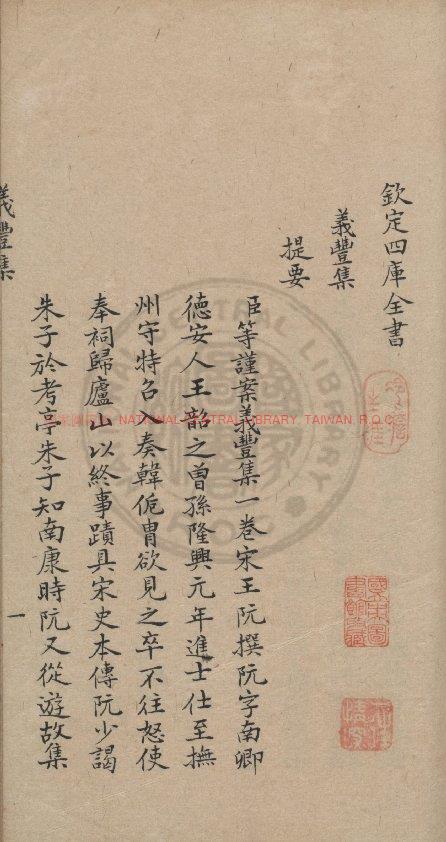 欽定四庫全書
義豐集
提要
臣等謹案義豐集一卷宋王阮撰阮字南卿
德安人王韶之曽孫隆興元年進士仕至撫
州守特召入奏韓侂胄欲見之卒不往怒使
奉祠歸廬山以終事蹟具宋史本傳阮少謁
朱子於考亭朱子知南康時阮又從遊故集
義豐集
一
NATIONAL CENTRAL LIBRARY, TAIWAN, R.O.C
國立中央圖書館收藏